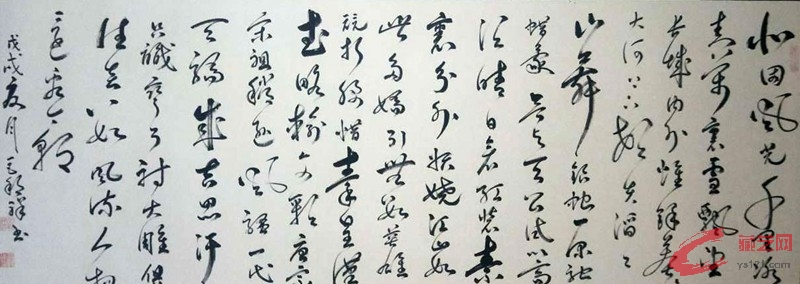 北国风光千里冰
封万里雪飘望
长城内外惟余莽莽
大河上下顿失滔滔
山舞银蛇原驰
蜡象欲与天公试比高
须晴日看红装素
裹分外妖娆江山如
此多娇引无数英雄
竞折腰惜秦皇汉
武略输文采唐宗
宋祖稍逊风骚一代
天骄成吉思汗
只识弯弓射大雕俱
往矣数风流人物
还看今朝
戊戌夏月 毛 祥书